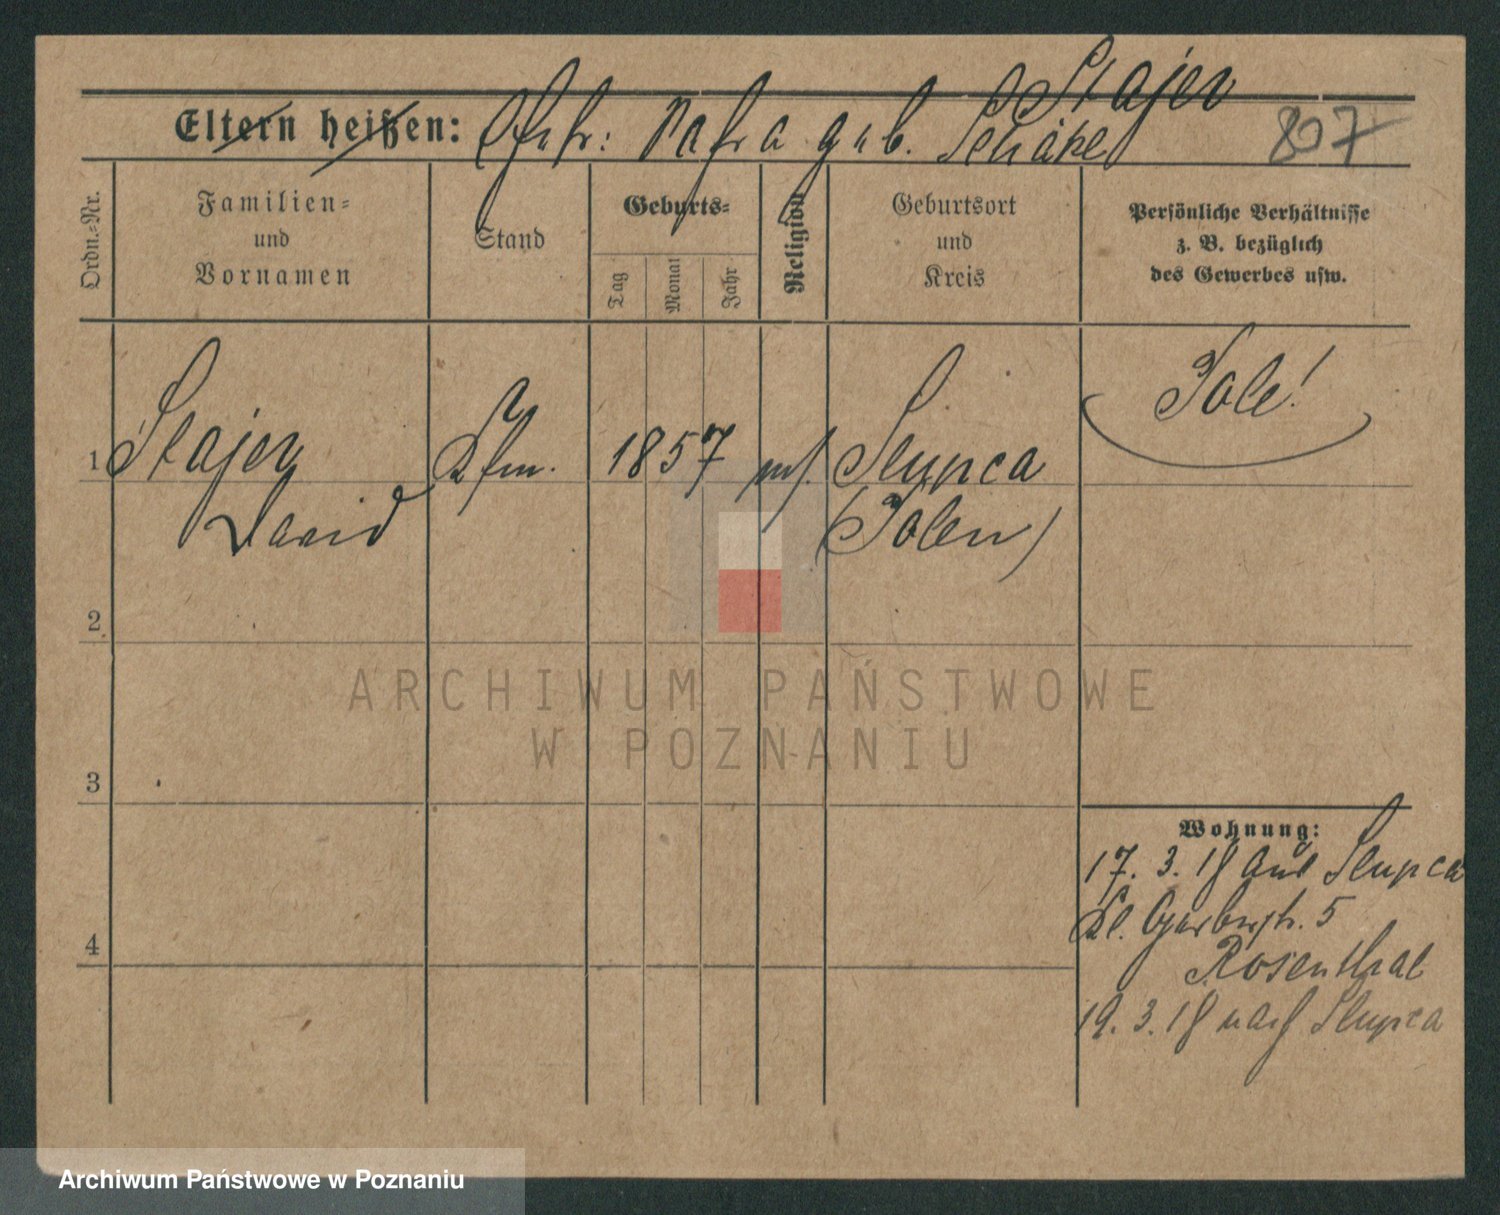 Stajer
Eltern heißen: Ehefr: Nafra geb. Schäkel 807
Ordn.-Nr.
Familien-
und
Vornamen
Stand
Geburts-
Tag
Monat
Jahr
Religion
Geburtsort
und
Kreis
Persönliche Verhältnisse
z. B. bezüglich
des Gewerbes usw.
Pole!
1 Stajer Kfm. 1857 mos. Slupca
David (Polen)
2
3
4
Wohnung:
17. 3. 18 aus Slupca
Kl. Gerberstr. 5
Rosenthal
19. 3. 18 nach Slupca
ARCHIWUM PAŃSTWOWE
W POZNANIU
Archiwum Państwowe w Poznaniu